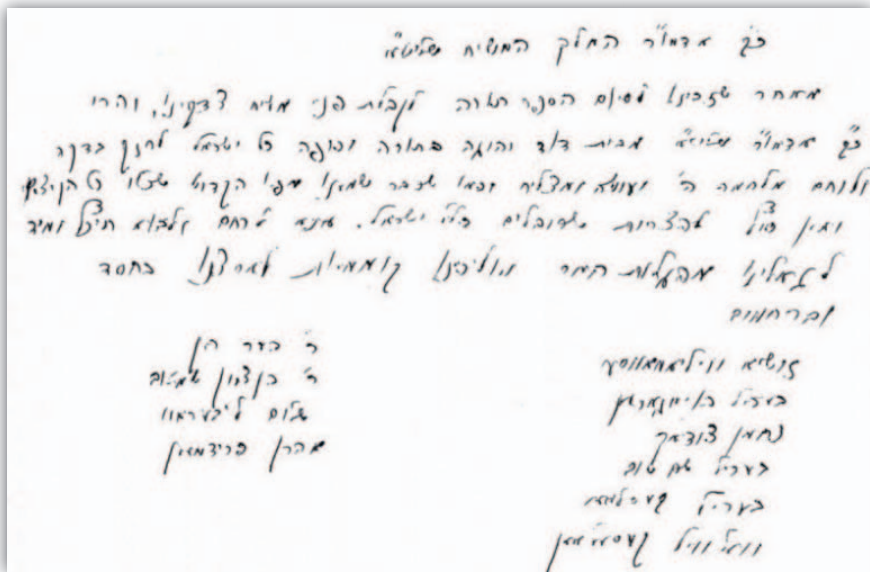 כ"ק אדמו"ר המלך המשיח שליט"א
מאחר שזכינו לסיום הספר תורה לקבלת פני משיח צדקינו, והרי
כ"ק אדמו"ר שליט"א מבית דוד והוגה בתורה וכופה כל ישראל לחזק בדקה
ולוחם מלחמת ה' ועושה ומצליח וכמו שכבר שמענו מפי הקדוש שכלו כל הקיצין
ואין להצרות שסובלים כלל ישראל. אנא לרחם ולבוא תיכף ומיד
לגאלינו מהגלות המר ותוליכנו קוממיות לארצנו בחסד
וברחמים
ר' בער חן
ר' בן ציון שם טוב
שלום
אהרן פרידמאן
זושא
בערל
נחמן
בערל שם טוב
בערל
וועלוויל